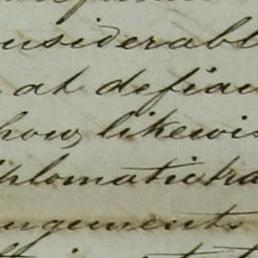 considerabl
at defian
how, likewis
iplomatic tra
ngements